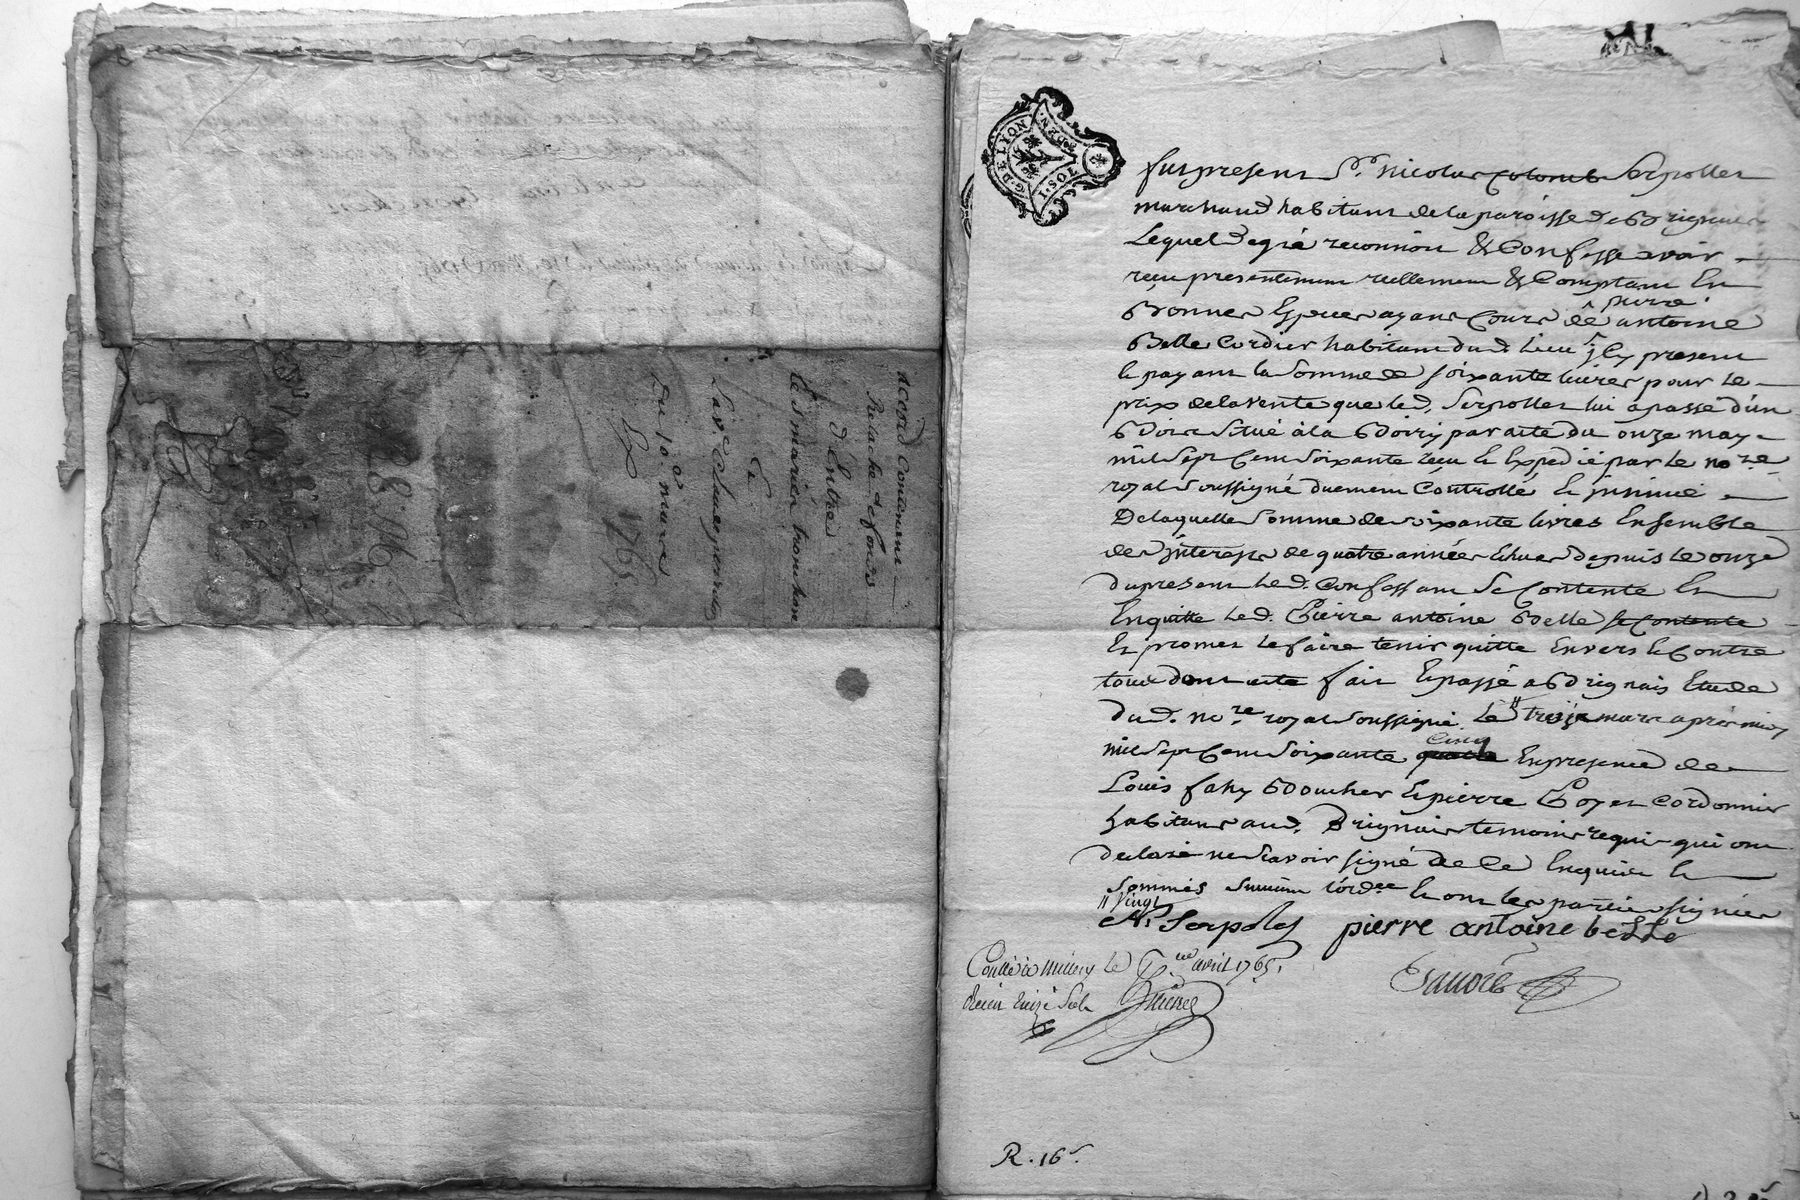 acord Contenant
Relache de fonds
d'Entre
les mariés tronchere
&
La ve
du 10e mars
1765
G. DE LYON
1. SOL
fut present Sr. nicolas Colomb Serpollet
marchand habitant de la paroisse de Brignais
Lequel de gré reconnoit & Confesse avoir
reçu presentement reellement & Comptant En
Bonnes Especes ayant Cours de pierre antoine
Belle Cordier habitant dud. Lieu jcy present
& payant la Somme de soixante livres pour le
prix de la vente que led. Serpollet lui a passé d'un
Bois Situé à la Bory par acte du onze may
mil Sept Cent Soixante reçu & Expedié par le nore
royal Soussigné duement Controllé & jnsinué
De laquelle Somme de soixante livres Ensemble
des jnterests de quatre années Echues depuis le onze
du present led. Confessant Se Contente &
En quitte led. Pierre antoine Belle se contente
Et promet le faire tenir quitte Envers & Contre
tous dont acte fait & passé a Brignais Etude
dud. nore royal Soussigné Le treize mars après midy
mil Sept Cent Soixante quatre cinq En presence de
Louis fahy Boucher & pierre Boyer Cordonnier
habitans aud. Brignais temoins requis qui ont
declaré ne Scavoir signé de Ce Enquis &
sommés Suivant l'ordce & ont les parties signées
vingt
N. Serpolet pierre antoine belle
Conllé à Millery Le avril 1765.
Reçu treize Sols
R. 16s.